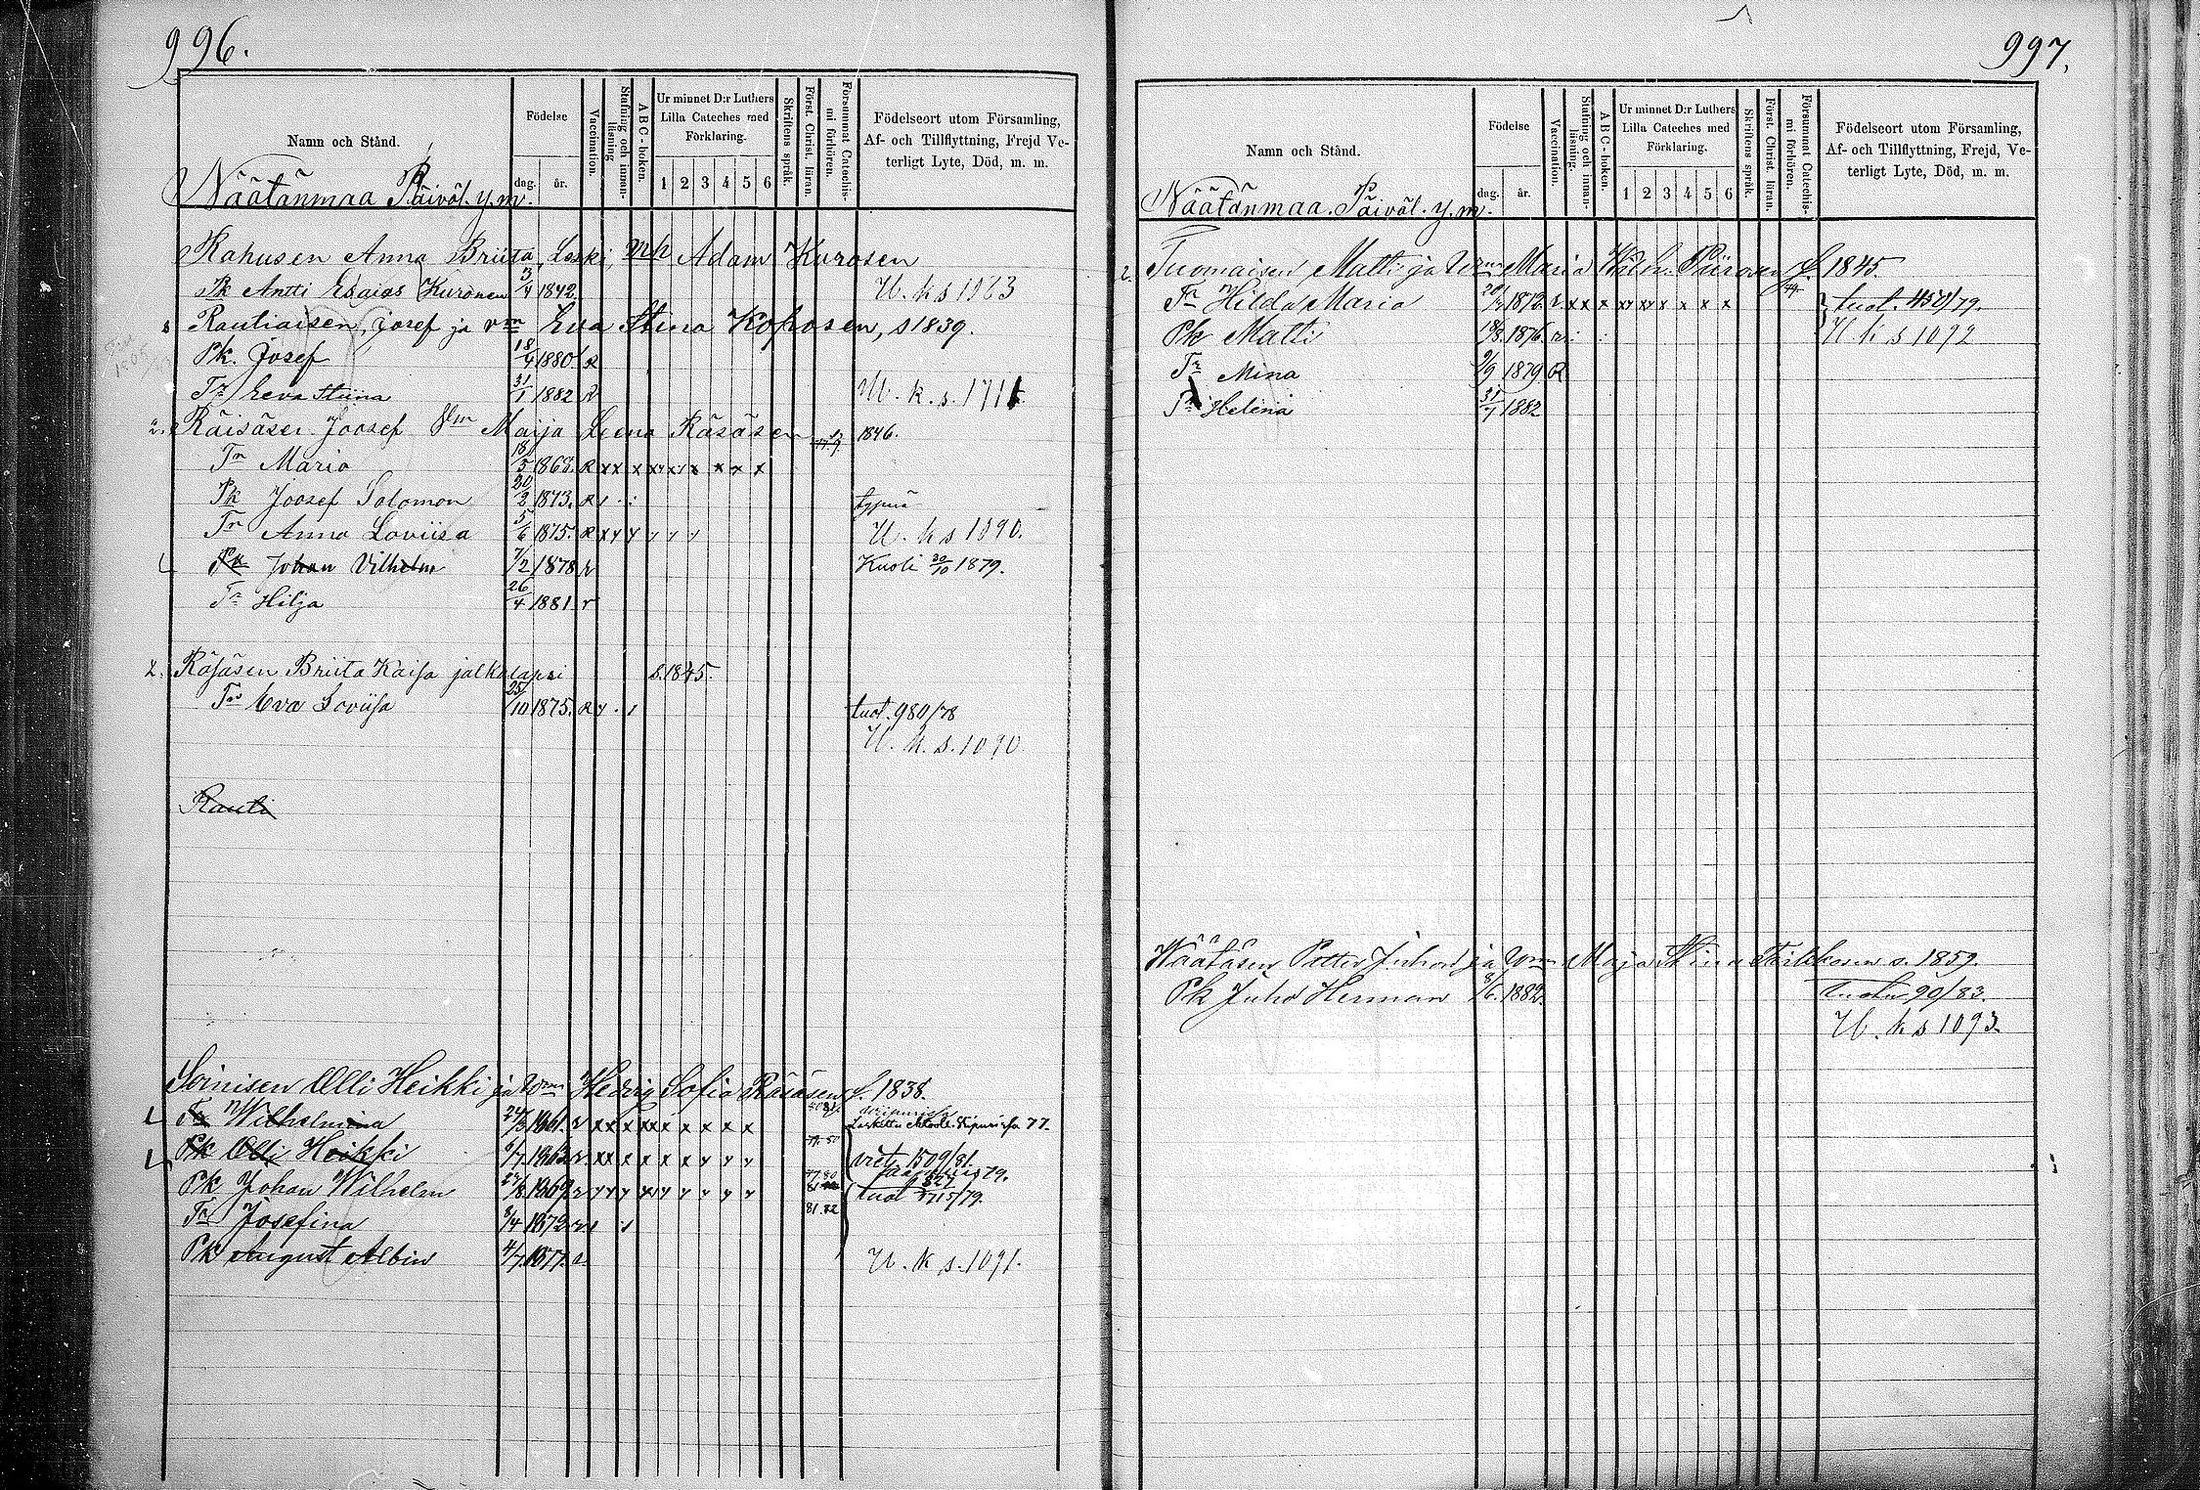 996.
Namn och Stånd.
Födelse
dag. år.
Vaccination.
Stafning och innan-läsning
ABC-boken.
Ur minnet D:r Luthers Lilla Cateches med Förklaring.
1 2 3 4 5 6
Skriftens språk.
Först. Christ. läran.
Försummat Catechismi förhören.
Födelseort utom Församling,
Af- och Tillflyttning, Frejd Ve-
terligt Lyte, Död, m. m.
Näätänmaa Päiväl. y.m.
Rahusen Anna Briita, Leski, mh Adam Kurosen
Pk Antti Esaias Kuronen 3/4 1842. U. k s 1023
Rautiaisen, Josef ja vm Eva Stina Koposen, s 1839.
Pk. Josef 18/4 1880. R
Tr Eeva Stiina 31/1 1882 R U. k. s. 1711
2. Räisäsen Joosef Vm Maija Leena Räsäsen s. 1846.
Tr Maria 18/5 1868. R x x x x x x x x x
Pk Joosef Solomon 20/2 1873. R typmä
Tr Anna Loviisa 5/6 1875. R x y y y y y U. k s 1090.
Pk Johan Vilhelm 7/2 1878 r Kuoli 20/10 1879.
Tr Hilja 26/4 1881. r
2. Räsäsen Briita Kaisa jalkalapsi s. 1845.
Tr Eva Loviisa 25/10 1875. R y . , tuot. 980/78
U. k. s. 1090.
Rauti
Soinisen Olli Heikki ja Vm Hedvig Sofia Räsäsen s. 1838.
Tr Wilhelmina 24/3 1861. r x x x x x x x x x
Pk Olli Heikki 6/7 1863. r x x x x x x y y y viet. 1509/81.
Pk Johan Wilhelm 24/8 1869. r y y y x y y y y y tuot 1715/79.
Tr Josefina 8/4 1872. r 81.82
Pk August Albin 4/7. 1877. r U. k s. 1091.
997.
Namn och Stånd.
Födelse
dag. år.
Vaccination.
Stafning och innan-läsning.
ABC-boken.
Ur minnet D:r Luthers Lilla Cateches med Förklaring.
1 2 3 4 5 6
Skriftens språk.
Först. Christ. läran.
Försummat Catechismi förhören.
Födelseort utom Församling,
Af- och Tillflyttning, Frejd, Ve-
terligt Lyte, Död, m. m.
Näätänmaa. Päiväl. y. m.
2. Tuomaisen, Matti ja Vm Maria Wilh. Piirosen s. 1845.
Tr Hilda Maria 1872. r. x x x x x x x x x tuot. 450/79.
Pk Matti 18/8. 1876. r U k s 1092
Tr Mina 9/9 1879 R
Tr Helena 31/7 1882
Wäätäsen Petter Juhana ja Vm Maja Stina s. 1859.
Pk Juho Herman 8/6. 1882. 90/83.
U. k s 1093.